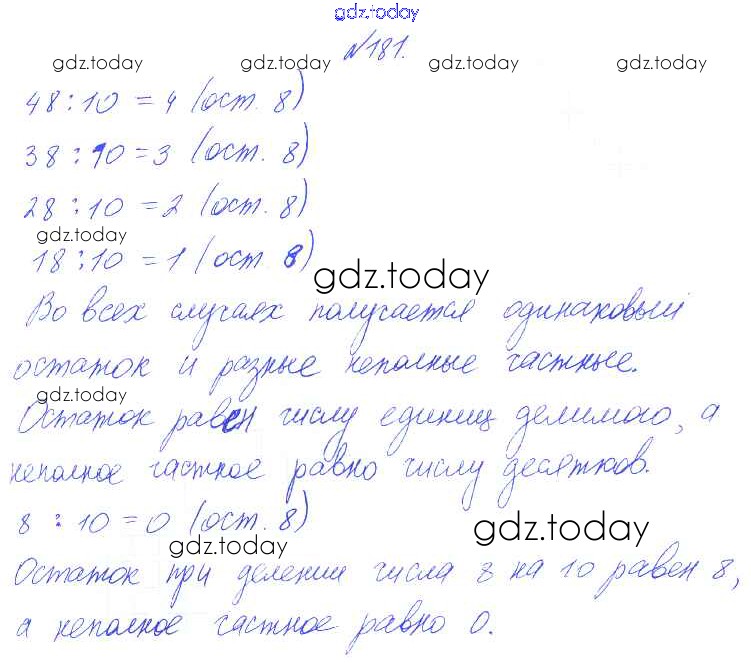 gdz.today
№181.
gdz.today gdz.today gdz.today gdz.today
48:10=4 (ост. 8)
38:10=3 (ост. 8)
28:10=2 (ост. 8)
gdz.today
18:10=1 (ост. 8)
gdz.today
Во всех случаях получается одинаковый
остаток и разные неполные частные.
gdz.today
Остаток равен числу единиц делимого, а
неполное частное равно числу десятков.
8:10=0 (ост. 8)
gdz.today
gdz.today
Остаток при делении числа 8 на 10 равен 8,
а неполное частное равно 0.